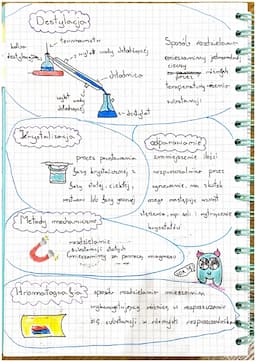 Destylacja
termometr
wylot wody chłodzącej
kolba
destylacyjna
chłodnica
wlot wody
chłodzącej
destylat
Sposób rozdzielania
mieszaniny jednorodnej
cieczy
różnych
temperaturach wrzenia
substancji
Krystalizacja
proces powstawania
fazy krystalicznej z
fazy stałej, ciekłej,
roztworu lub fazy gazowej
odparowanie
zmniejszenie ilości
rozpuszczalnika przez
ogrzewanie, na skutek
czego następuje wzrost
stężenia, np. soli i wytrącenie
kryształów
Metody mechaniczne
rozdzielanie
substancji stałych
(mieszaniny za pomocą magnesu
Chromatografia
sposób rozdzielania mieszanin
wykorzystujący różnice w rozpuszczaniu
się substancji w różnych rozpuszczalnikach